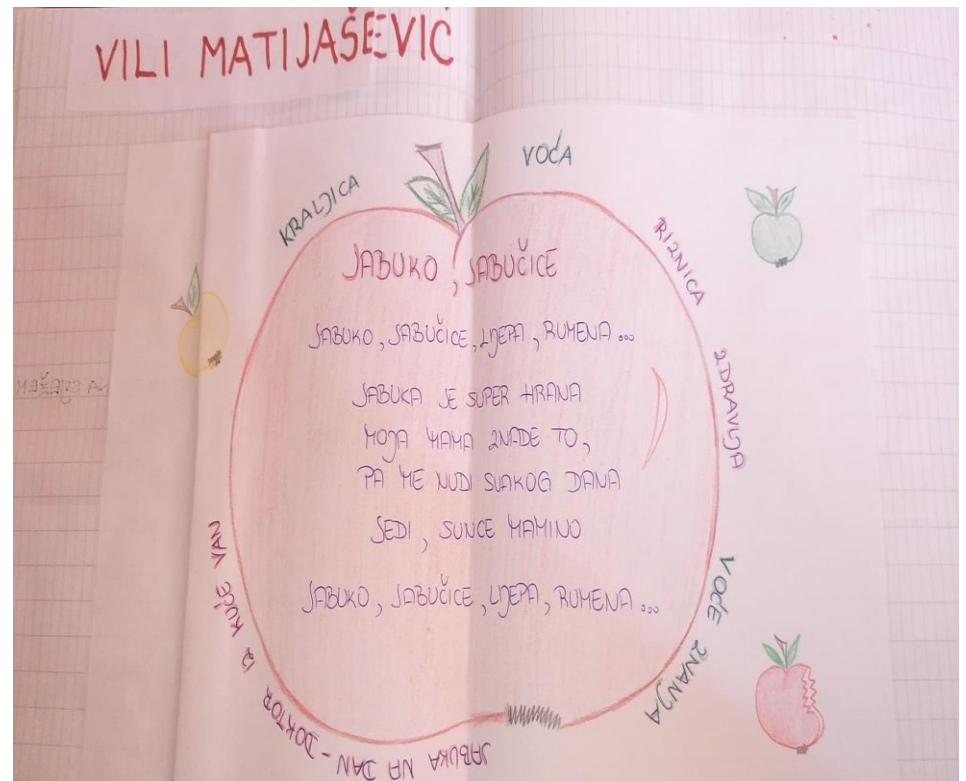 VILI MATIJAŠEVIĆ
KRALJICA VOĆA
RIZNICA ZDRAVLJA
VOĆE ZNANJA
JABUKA NA DAN - DOKTOR IZ KUĆE VAN
JABUKO, JABUČICE
JABUKO, JABUČICE, LIJEPA, RUMENA...
JABUKA JE SUPER HRANA
MOJA MAMA ZNADE TO,
PA ME NUDI SVAKOG DANA
JEDI, SUNCE MAMINO
JABUKO, JABUČICE, LIJEPA, RUMENA...